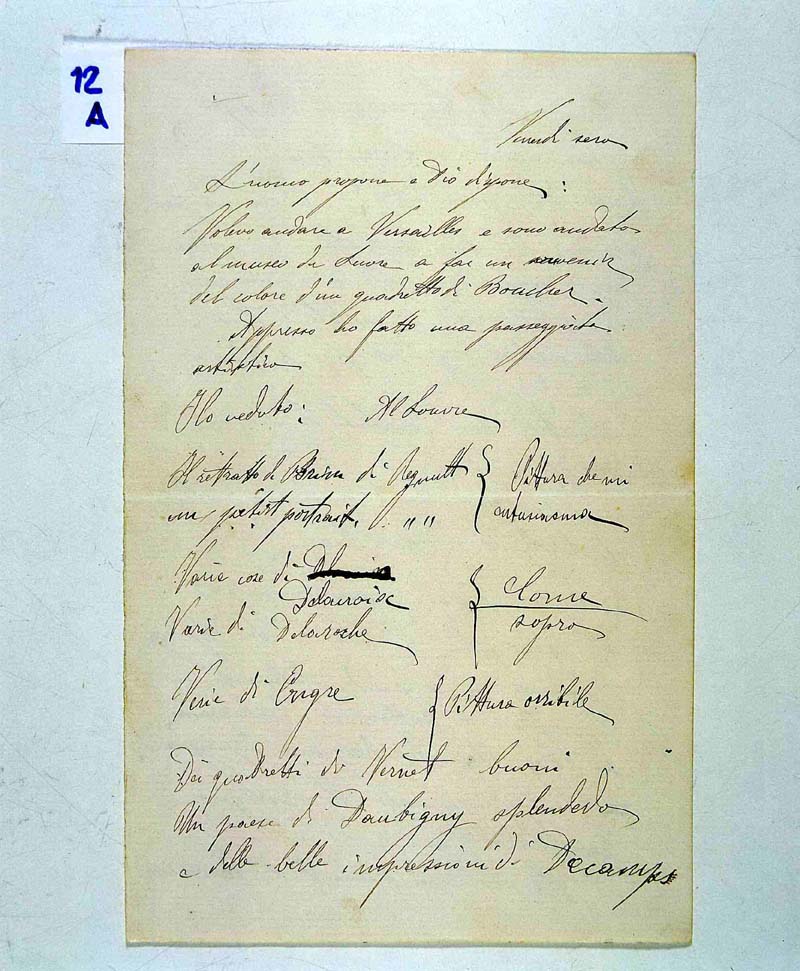 12
A
Venerdi sera
L'uomo propone e Dio dispone:
Volevo andare a Versailles e sono andato
al museo du Luvre a far un souvenir
del colore d'un quadretto di Boucher.
Appresso ho fatto una passeggiata
artistica
Ho veduto: Al Louvre
Il ritratto di Prim di Regnault
un petit portrait, " "
Pittura che mi
entusiasma
Varie cose di
Delacroix
Varie di Delaroche
Come
sopra
Varie di Engre
Pittura orribile
Dei quadretti di Vernet buoni
Un paese di Daubigny splendido
e delle belle impressioni di Decamps